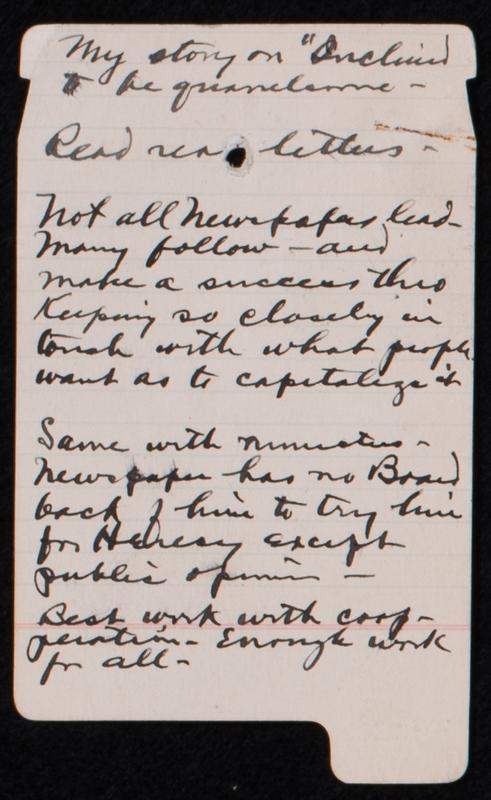 My story on "Inclined
to be quarrelsome -
Read letters -
Not all Newspapers lead -
Many follow - and
make a success thro
Keeping so closely in
touch with what people
want as to capitalize it
Same with ministers -
Newspaper has no Board
back of him to try him
for Heresy except
public opinion -
Best work with coop-
peration - Enough work
for all -